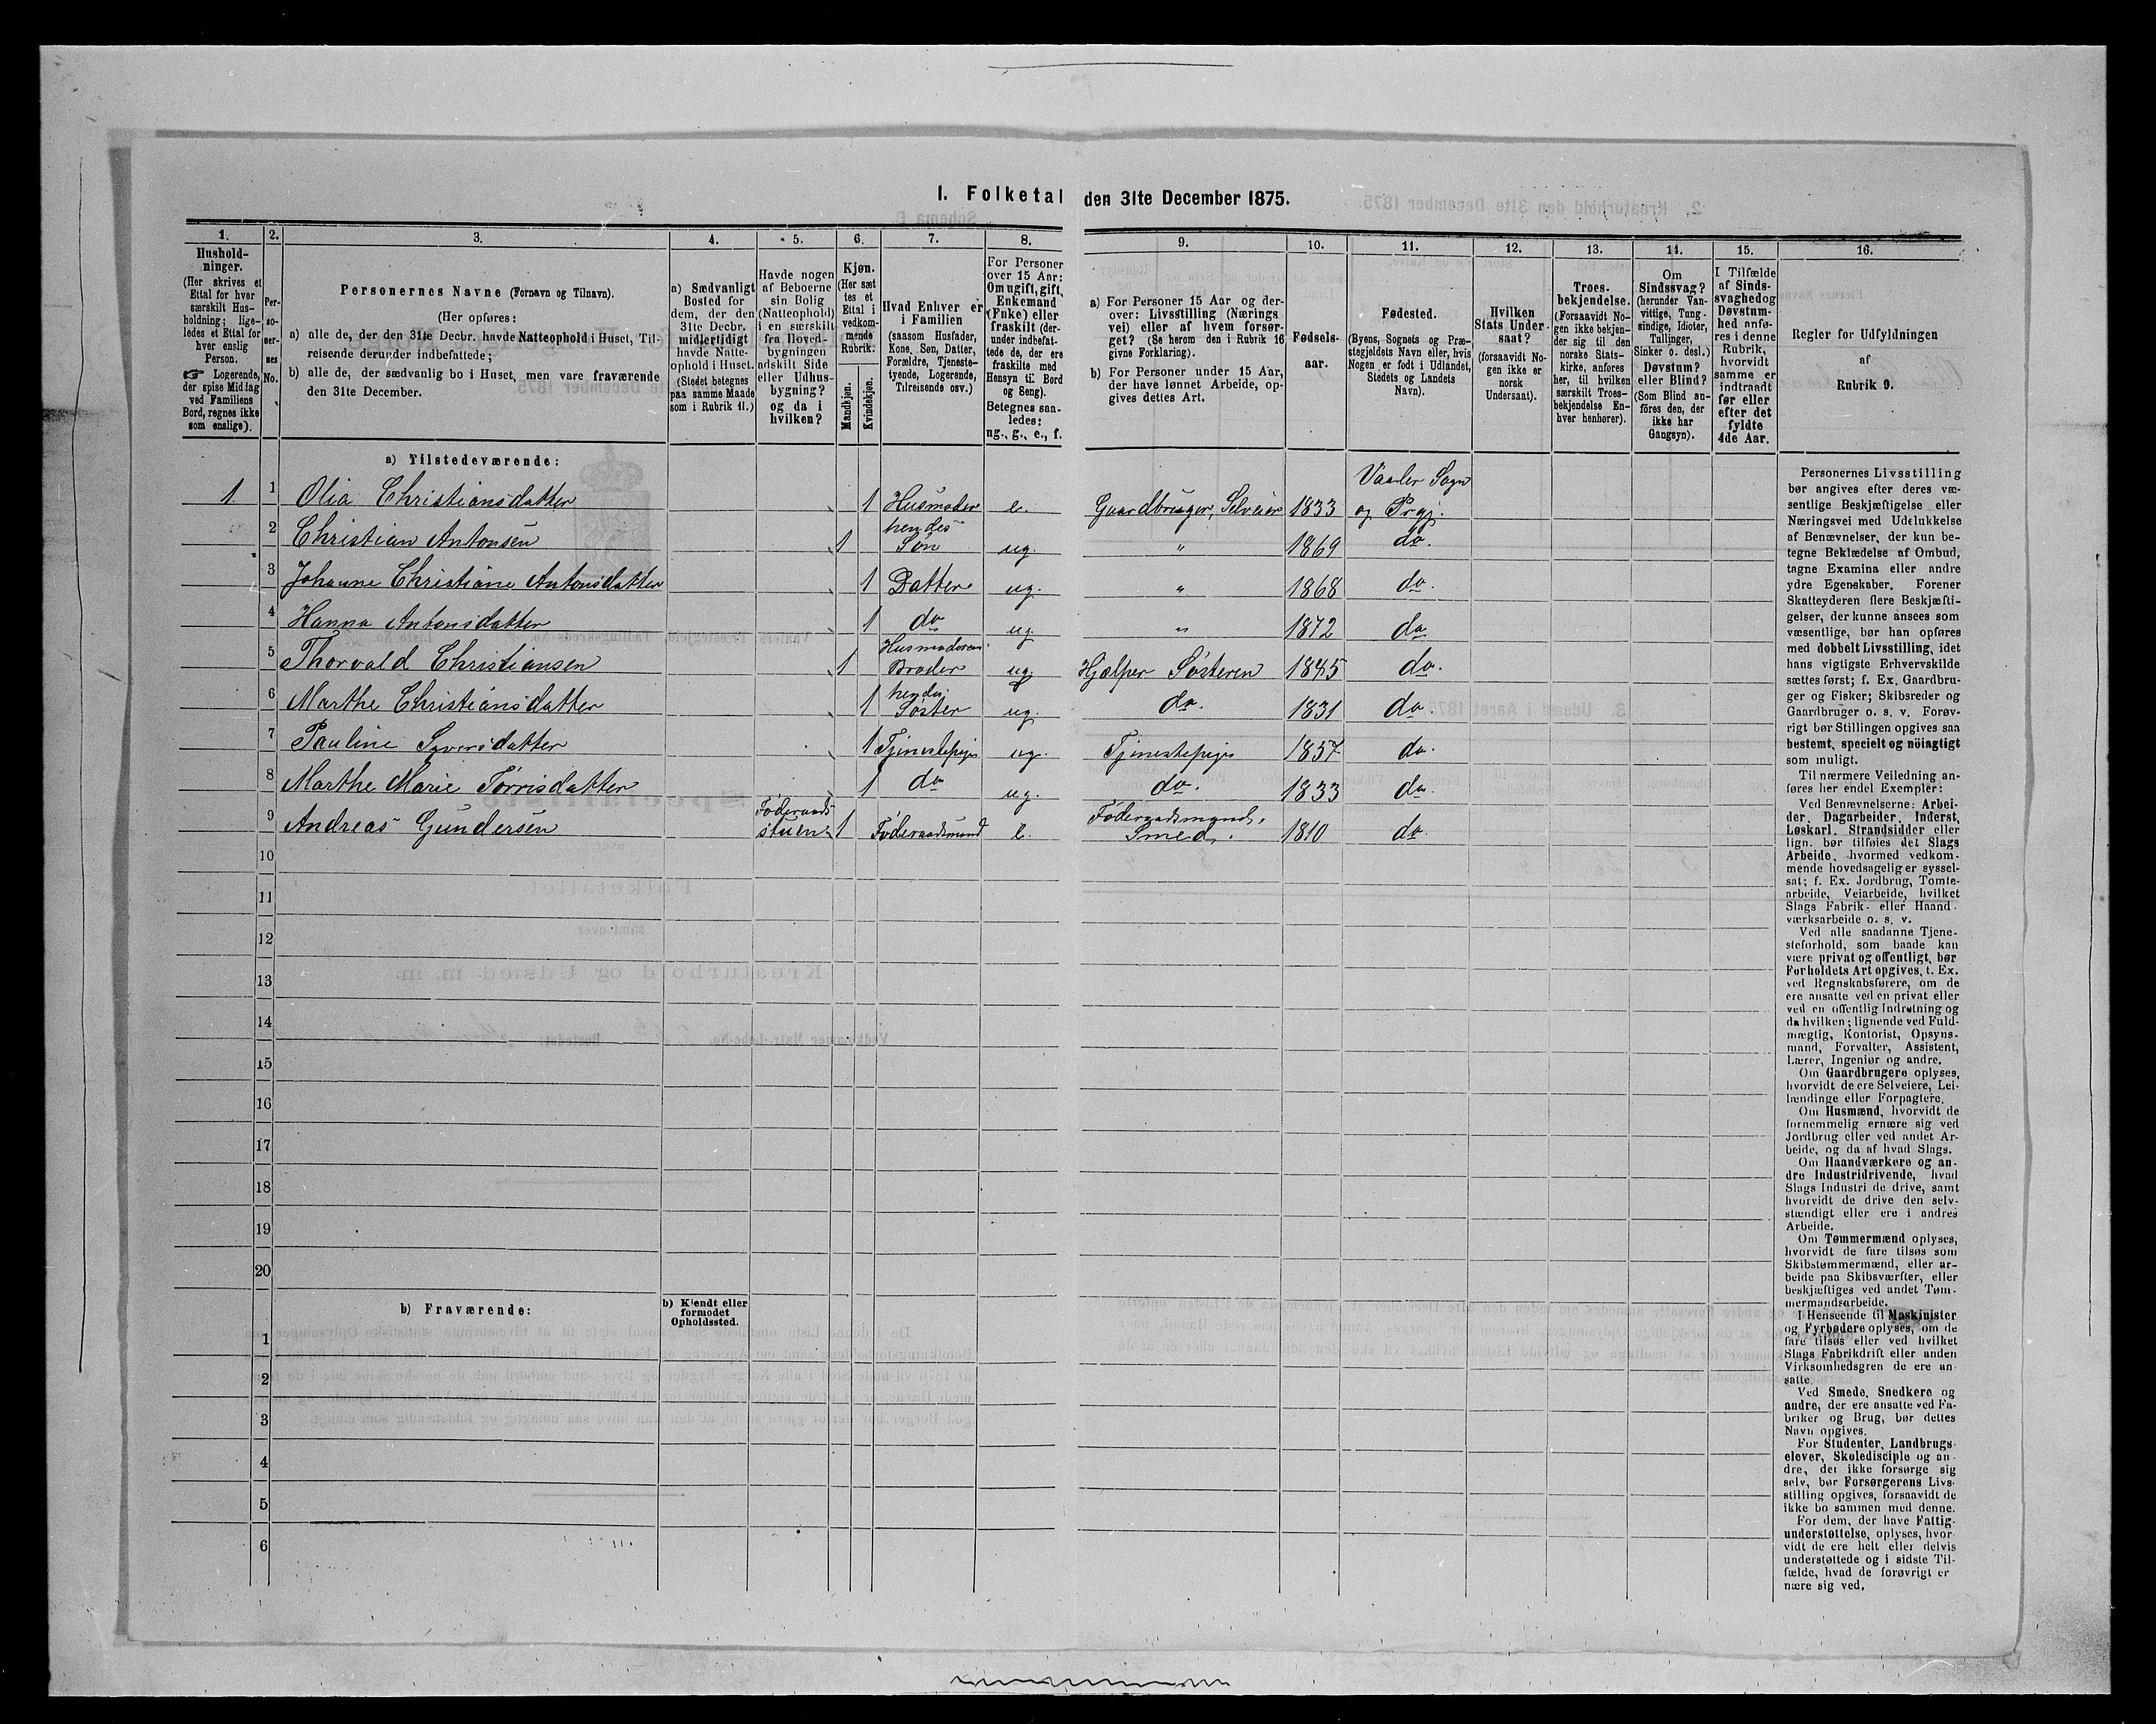 1. Folketal den 31te December 1875.
1. 2. 3. 4. 5. 6. 7. 8. 9. 10. 11. 12. 13. 14. 15. 16.
Hushold-
ninger.
(Her skrives et
Ettal for hver
særskilt Hus-
holdning; lige-
ledes et Ettal for
hver enslig
Person.
☞ Logerende,
der spise Middag
ved Familiens
Bord, regnes ikke
som enslige).
Per-
so-
ner-
nes
No.
Personernes Navne (Fornavn og Tilnavn).
(Her opføres:
a) alle de, der den 31te Decbr. havde Natteophold i Huset, Til-
reisende derunder indbefattede;
b) alle de, der sædvanlig bo i Huset, men vare fraværende
den 31te December.
a) Sædvanligt
Bosted for
dem, der den
31te Decbr.
midlertidigt
havde Natte-
ophold i Huset.
(Stedet betegnes
paa samme Maade
som i Rubrik 11.)
Havde nogen
af Beboerne
sin Bolig
(Natteophold)
i en særskilt
fra Hoved-
bygningen
adskilt Side
eller Udhus-
bygning?
og da i
hvilken?
Kjøn.
(Her sæt
tes et
Ettal i
vedkom-
mende
Rubrik.
Mandkjøn.
Kvindekjøn.
Hvad Enhver er
i Familien
(saasom Husfader,
Kone, Søn, Datter,
Forældre, Tjeneste-
tyende, Logerende,
Tilreisende osv.)
For Personer
over 15 Aar:
Om ugift, gift,
Enkemand
(Enke) eller
fraskilt (der-
under indbefat-
tede de, der ere
fraskilte med
Hensyn til Bord
og Seng).
Betegnes saa-
ledes:
ug., g., e., f.
a) For Personer 15 Aar og der-
over: Livsstilling (Nærings
vei) eller af hvem forsør-
get? (Se herom den i Rubrik 16
givne Forklaring).
b) For Personer under 15 Aar,
der have lønnet Arbeide, op-
gives dettes Art.
Fødsels-
aar.
Fødested.
(Byens, Sognets og Præ-
stegjeldets Navn eller, hvis
Nogen er født i Udlandet,
Stedets og Landets
Navn).
Hvilken
Stats Under-
saat?
(forsaavidt No-
gen ikke er
norsk
Undersaat).
Troes-
bekjendelse.
(Forsaavidt No-
gen ikke bekjen-
der sig til den
norske Stats-
kirke, anføres
her, til hvilken
særskilt Troes-
bekjendelse En-
hver henhører).
Om
Sindssvag?
(herunder Van-
vittige, Tung-
sindige, Idioter,
Tullinger,
Sinker o. desl.)
Døvstum?
eller Blind?
(Som Blind an-
føres den, der
ikke har
Gangsyn).
I Tilfælde
af Sinds-
svaghed og
Døvstum-
hed anfø-
res i denne
Rubrik,
hvorvidt
samme er
indtraadt
før eller
efter det
fyldte
4de Aar.
Regler for Udfyldningen
af
Rubrik 9.
a) Tilstedeværende:
Vaaler Sogn
1. 1 Olia Christiansdatter 1 Husmoder e. Gaardbruger, Selveier 1833 og Prgj.
hendes
2 Christian Antonsen 1 Søn ug. " 1869 do.
3 Johanne Christiane Antonsdatter 1 Datter ug. " 1868 do.
4 Hanna Antonsdatter 1 do ug. " 1872 do
Husmoderens
5 Thorvald Christiansen 1 Broder ug. Hjælper Søsteren 1845 do.
hendes
6 Marthe Christiansdatter 1 Søster ug. do. 1831 do.
7 Pauline Syversdatter 1 Tjenestepige ug. Tjenestepige 1857 do.
8 Marthe Marie Torrisdatter 1 do ug. do. 1833 do.
Føderaads Føderaadsmand,
9 Andreas Gundersen stuen 1 Føderaadsmand e. Smed. 1810 do.
10
11
12
13
14
15
16
17
18
19
20
b) Fraværende:
b) Kjendt eller
formodet
Opholdssted.
1
2
3
4
5
6
Personernes Livsstilling
bør angives efter deres væ-
sentlige Beskjæftigelse eller
Næringsvei med Udelukkelse
af Benævnelser, der kun be-
tegne Beklædelse af Ombud,
tagne Examina eller andre
ydre Egenskaber. Forener
Skatteyderen flere Beskjæfti-
gelser, der kunne ansees som
væsentlige, bør han opføres
med dobbelt Livsstilling, idet
hans vigtigste Erhvervskilde
sættes først; f. Ex. Gaardbru-
ger og Fisker; Skibsreder og
Gaardbruger o. s. v. Forøv-
rigt bør Stillingen opgives saa
bestemt, specielt og nöiagtigt
som muligt.
Til nærmere Veiledning an-
føres her endel Exempler:
Ved Benævnelserne: Arbei-
der, Dagarbeider, Inderst,
Løskarl, Strandsidder eller
lign. bør tilføies det Slags
Arbeide, hvormed vedkom-
mende hovedsagelig er syssel-
sat; f. Ex. Jordbrug, Tomte-
arbeide, Veiarbeide, hvilket
Slags Fabrik- eller Haand-
værksarbeide o. s. v.
Ved alle saadanne Tjene-
steforhold, som baade kan
være privat og offentligt, bør
Forholdets Art opgives, t. Ex.
ved Regnskabsførere, om de
ere ansatte ved en privat eller
ved en offentlig Indretning og
da hvilken; lignende ved Fuld-
mægtig, Kontorist, Opsyns-
mand, Forvalter, Assistent,
Lærer, Ingeniør og andre.
Om Gaardbrugere oplyses,
hvorvidt de ere Selveiere, Lei-
lændinge eller Forpagtere.
Om Husmænd, hvorvidt de
fornemmelig ernære sig ved
Jordbrug eller ved andet Ar-
beide, og da af hvad Slags.
Om Haandværkere og an-
dre Industridrivende, hvad
Slags Industri de drive, samt
hvorvidt de drive den selv-
stændigt eller ere i andres
Arbeide.
Om Tømmermænd oplyses,
hvorvidt de fare tilsøs som
Skibstømmermænd, eller ar-
beide paa Skibsværfter, eller
beskjæftiges ved andet Tøm-
mermandsarbeide.
I Henseende til Maskinister
og Fyrbødere oplyses, om de
fare tilsøs eller ved hvilket
Slags Fabrikdrift eller anden
Virksomhedsgren de ere an-
satte.
Ved Smede, Snedkere og
andre, der ere ansatte ved Fa-
briker og Brug, bør dettes
Navn opgives.
For Studenter, Landbrugs-
elever, Skoledisciple og an-
dre, der ikke forsørge sig
selv, bør Forsørgerens Livs-
stilling opgives, forsaavidt de
ikke bo sammen med denne.
For dem, der have Fattig-
understøttelse, oplyses, hvor-
vidt de ere helt eller delvis
understøttede og i sidste Til-
fælde, hvad de forøvrigt er
nære sig ved.